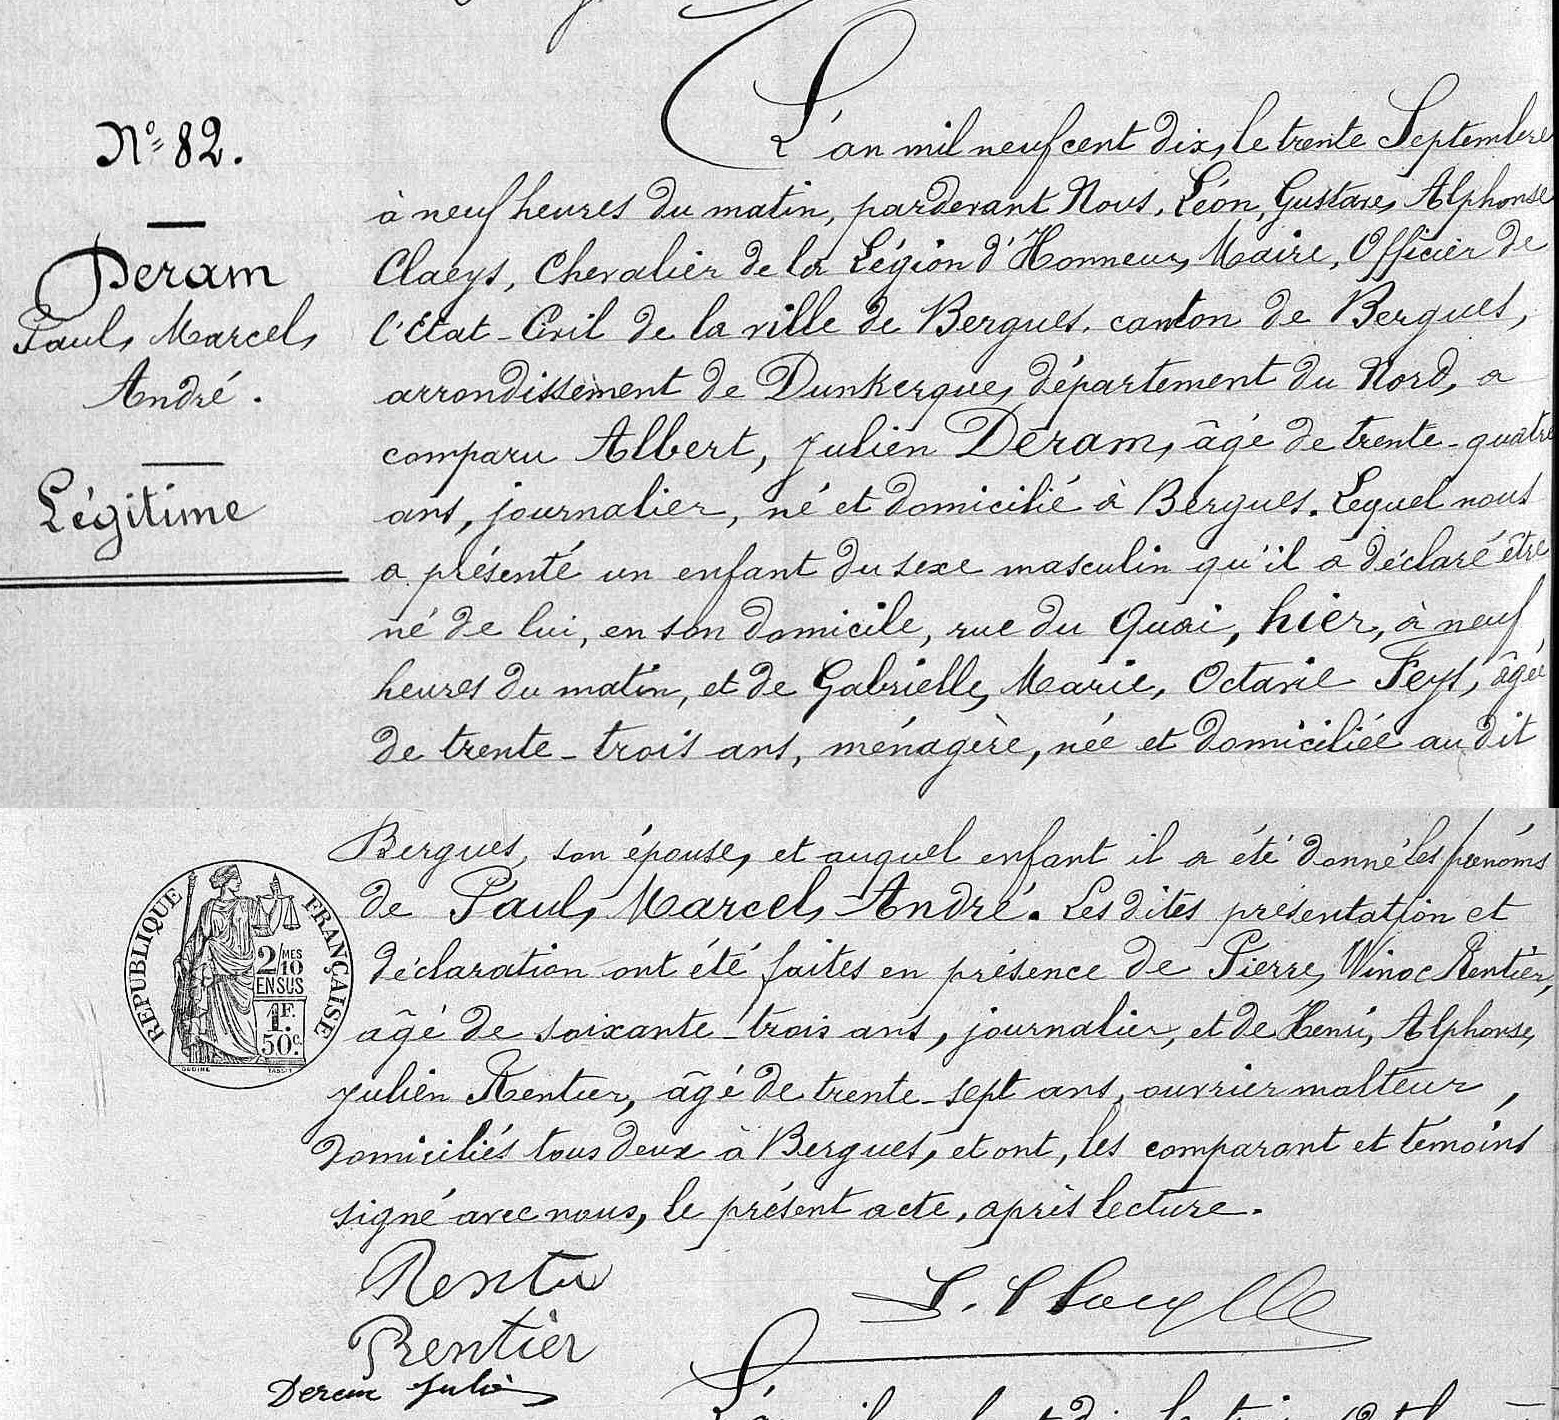 N° 82.
Deram
Paul, Marcel,
André.
Légitime
L'an mil neuf cent dix, le trente Septembre
à neuf heures du matin, pardevant Nous, Léon, Gustave, Alphonse
Claeys, Chevalier de la Légion d'Honneur, Maire, Officier de
l'Etat-Civil de la ville de Bergues, canton de Bergues,
arrondissement de Dunkerque, département du Nord, a
comparu Albert, Julien Deram, âgé de trente-quatre
ans, journalier, né et domicilié à Bergues. Lequel nous
a présenté un enfant du sexe masculin qu'il a déclaré être
né de lui, en son domicile, rue du Quai, hier, à neuf
heures du matin, et de Gabrielle, Marie, Octavie Feys, âgée
de trente-trois ans, ménagère, née et domiciliée au dit
Bergues, son épouse, et auquel enfant il a été donné les prénoms
de Paul, Marcel, André. Les dites présentation et
déclaration ont été faites en présence de Pierre, Winoc Rentier,
âgé de soixante-trois ans, journalier, et de Henri, Alphonse,
Julien Rentier, âgé de trente-sept ans, ouvrier malteur,
domiciliés tous deux à Bergues, et ont, les comparant et témoins
signé avec nous, le présent acte, après lecture.
RÉPUBLIQUE FRANÇAISE
2/MES
10
EN SUS
1F.
50c.
Rentier
L. Claeys
Rentier
Deram Julien
L'an